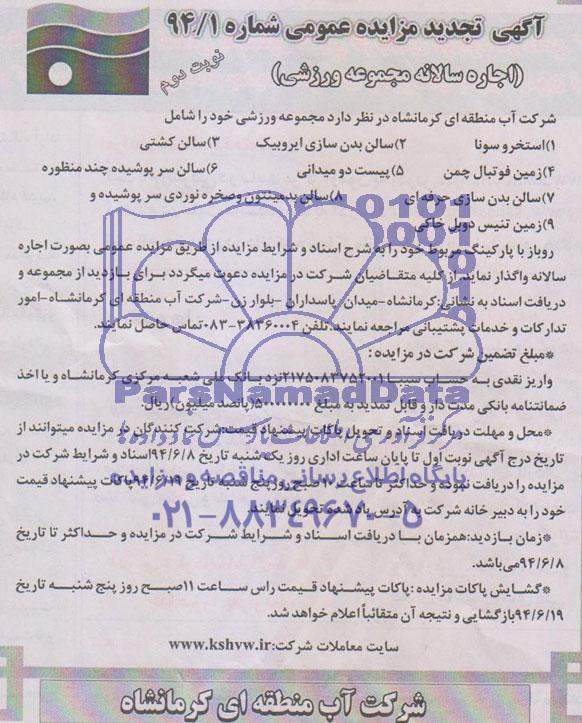 آگهی تجدید مزایده عمومی شماره ۹۴/۱
(اجاره سالانه مجموعه ورزشی)
نوبت دوم
شرکت آب منطقه ای کرمانشاه در نظر دارد مجموعه ورزشی خود را شامل
۱)استخروسونا ۲)سالن بدن سازی ایروبیک ۳)سالن کشتی
۴)زمین فوتبال چمن ۵)پیست دو میدانی ۶)سالن سر پوشیده چند منظوره
۷)سالن بدن سازی حرفه ای ۸)سالن بدمینتون وصخره نوردی سر پوشیده و
۹)زمین تنیس دوبل خاکی
روباز با پارکینگ مربوط خود را به شرح اسناد و شرایط مزایده از طریق مزایده عمومی بصورت اجاره
سالانه واگذار نماید. از کلیه متقاضیان شرکت در مزایده دعوت میگردد برای بازدید از مجموعه و
دریافت اسناد به نشانی: کرمانشاه-میدان پاسداران -بلوار زن-شرکت آب منطقه ای کرمانشاه-امور
تدارکات و خدمات پشتیبانی مراجعه نمایند. تلفن ۳۸۳۶۰۰۰۴-۰۸۳تماس حاصل نمایند.
*مبلغ تضمین شرکت در مزایده :
واریز نقدی به حساب سیبا ۲۱۷۵۰۸۳۷۵۲۰۰۱نزد بانک ملی شعبه مرکزی کرمانشاه و یا اخذ
ضمانتنامه بانکی مدت دار و قابل تمدید به مبلغ (پانصد میلیون) ریال.
*محل و مهلت دریافت اسناد و تحویل پاکات پیشنهاد قیمت:شرکت کنندگان در مزایده میتوانند از
تاریخ درج آگهی نوبت اول تا پایان ساعت اداری روز یک شنبه تاریخ ۹۴/۶/۸اسناد و شرایط شرکت در
مزایده را دریافت نموده و حداکثر تا ساعت ۱۰صبح روز پنج شنبه تاریخ ۹۴/۶/۱۹پاکات پیشنهاد قیمت
خود را به دبیر خانه شرکت به آدرس یاد شده تحویل نمایند.
*زمان بازدید:همزمان با دریافت اسناد و شرایط شرکت در مزایده و حداکثر تا تاریخ
۹۴/۶/۸می‌باشد.
*گشایش پاکات مزایده :پاکات پیشنهاد قیمت راس ساعت ۱۱صبح روز پنج شنبه تاریخ
۹۴/۶/۱۹بازگشایی و نتیجه آن متقائباً اعلام خواهد شد.
سایت معاملات شرکت:www.kshvw.ir
شرکت آب منطقه ای کرمانشاه
ParsNamadData
پایگاه اطلاع رسانی مناقصه و مزایده
۰۲۱-۸۸۳۴۹۶۷۰-۵